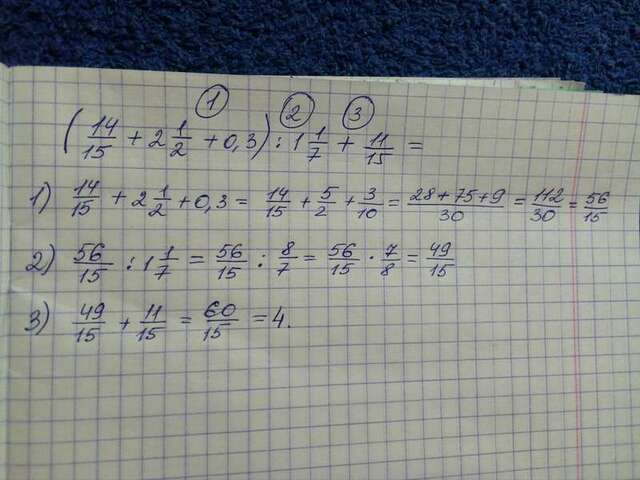 ① ② ③
(14/15 + 2 1/2 + 0,3) : 1 1/7 + 11/15 =
1) 14/15 + 2 1/2 + 0,3 = 14/15 + 5/2 + 3/10 = 28+75+9/30 = 112/30 = 56/15
2) 56/15 : 1 1/7 = 56/15 : 8/7 = 56/15 · 7/8 = 49/15
3) 49/15 + 11/15 = 60/15 = 4.